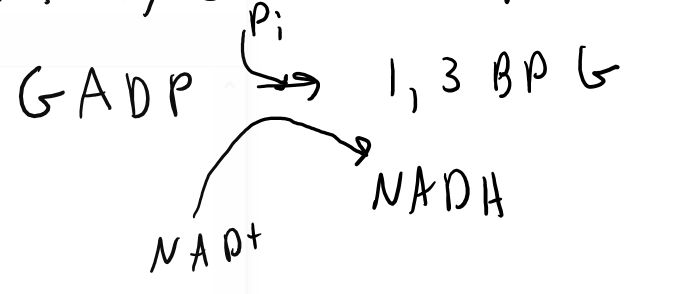 Pi
GADP → 1,3 BPG
NADH
NAD+